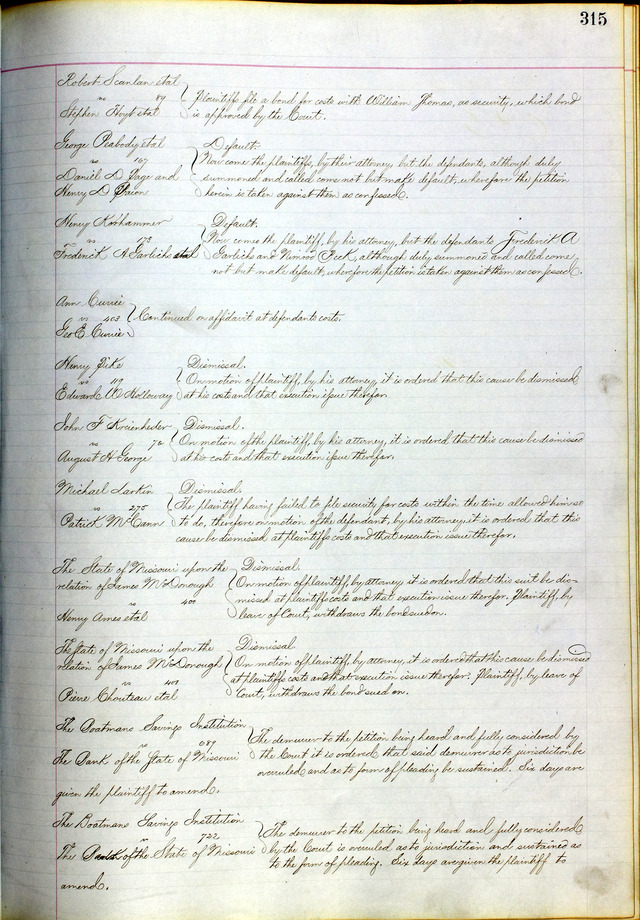 315
Robert Scanlan etal
vs 89
Stephen Hoyt etal
Plaintiffs file a bond for costs with William Thomas, as security, which bond
is approved by the Court.
George Peabody etal
vs 107
Daniel D Page and
Henry D
Default.
Now come the plaintiffs, by their attorney, but the defendants, although duly
summoned and called come not but make default, wherefore the petition
herein is taken against them as confessed.
Henry Korhammer
vs 73
Frederick A Garlichs etal
Default.
Now comes the plaintiff, by his attorney, but the defendants Frederick A
Garlichs and Nimrod, although duly summoned and called come
not but make default, wherefore the petition is taken against them as confessed.
Ann Currie
vs 403
Geo E Currie
Continued on affidavit at defendants costs.
Henry Pike
vs 119
Edward W Holloway
Dismissal.
On motion of plaintiff, by his attorney, it is ordered that this cause be dismissed
at his cost and that execution issue therefor.
John F Kreinheder
vs 72
August H George
Dismissal.
On motion of the plaintiff, by his attorney, it is ordered that this cause be dismissed
at his costs and that execution issue therefor.
Michael Larkin
vs 275
Patrick McCann
Dismissal.
The plaintiff having failed to file security for costs within the time allowed him so
to do, therefore on motion of the defendant, by his attorney it is ordered that this
cause be dismissed at plaintiffs costs and that execution issue therefor.
The State of Missouri upon the
relation of James McDonough
vs 400
Henry Ames etal
Dismissal.
On motion of plaintiff, by attorney, it is ordered that this suit be dis-
missed at plaintiffs costs and that execution issue therefor. Plaintiff, by
leave of Court, withdraws the bond sued on.
The State of Missouri upon the
relation of James McDonough
vs 401
Pierre Chouteau etal
Dismissal
On motion of plaintiff, by attorney, it is ordered that this cause be dismissed
at plaintiffs costs and that execution issue therefor. Plaintiff, by leave of
Court, withdraws the bond sued on.
The Boatmans Savings Institution
vs 687
The Bank of the State of Missouri
The demurrer to the petition being heard and fully considered by
the Court it is ordered that said demurrer as to jurisdiction be
overruled and as to form of pleading be sustained. Six days are
given the plaintiff to amend.
The Boatmans Savings Institution
vs 722
The Bank of the State of Missouri
The demurrer to the petition being heard and fully considered
by the Court is overruled as to jurisdiction and sustained as
to the form of pleading. Six days are given the plaintiff to
amend.